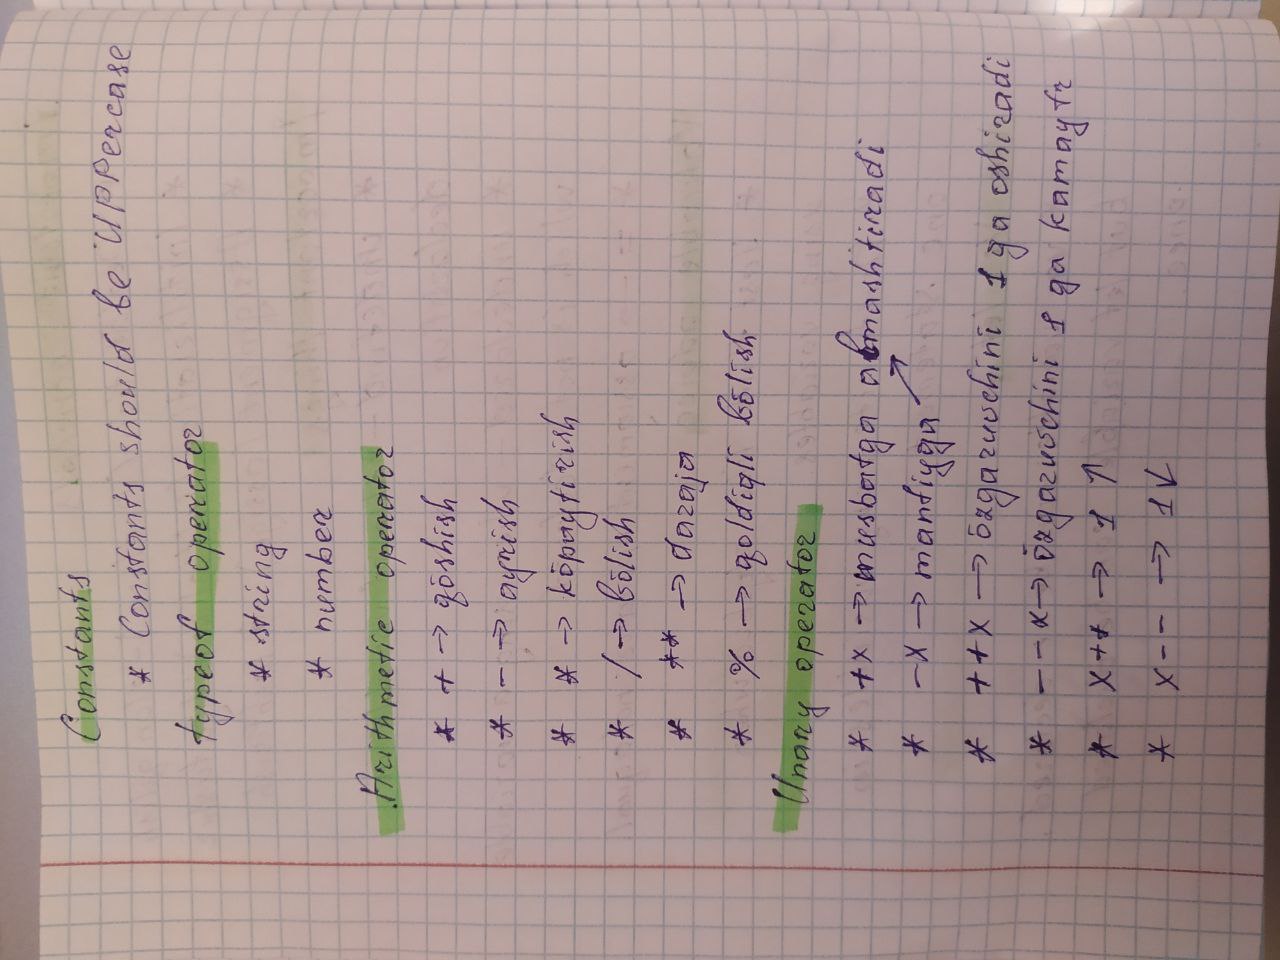 Constants
* Constants should be UPPercase
typeof operator
* string
* number
Arithmetic operator
* + → qōshish
* - → ayrish
* * → kōpaytirish
* / → bōlish
* ** → daraja
* % → qoldiqli bōlish
Unary operator
* +x → musbatga almashtiradi
* -x → manfiyga ↗
* ++x → ōzgaruvchini 1 ga oshiradi
* --x → ōzgaruvchini 1 ga kamaytr
* x++ → 1 ↑
* x-- → 1 ↓